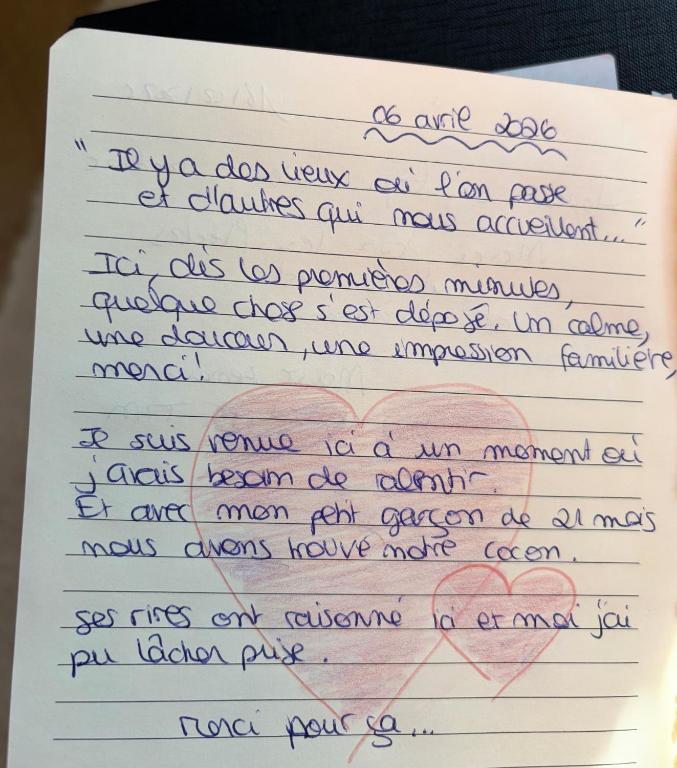 06 avril 2026
" Il y a des lieux où l'on passe
et d'autres qui nous accueillent... "
Ici, dès les premières minutes,
quelque chose s'est déposé. Un calme,
une douceur, une impression familière,
merci!
Je suis venue ici à un moment où
j'avais besoin de ralentir.
Et avec mon petit garçon de 21 mois
nous avons trouvé notre cocon.
ses rires ont raisonné ici et moi j'ai
pu lâcher prise.
Merci pour ça...